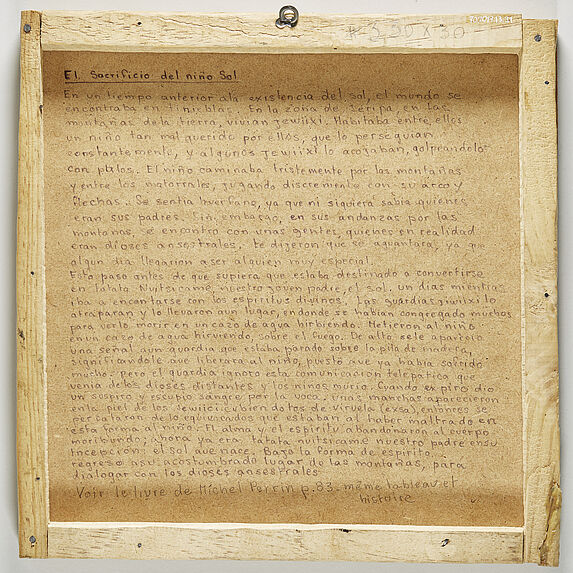 30 x 30
El Sacrificio del niño Sol
En un tiempo anterior ala existencia del sol, el mundo se
encontraba en tinieblas. En la zona de Seripa, en las
montañas de la tierra, vivian jewiixi. Habitaba entre ellos
un niño tan mal querido por ellos, que lo perseguian
constantemente, y algunos jewiixi lo acojaban, golpeandolo
con palos. El niño caminaba tristemente por las montañas
y entre los matorrales, jugando discremente con su arco y
flechas. Se sentia huerfano, ya que ni siquiera sabia quienes
eran sus padres. Sin embargo, en sus andanzas por las
montañas, se encontro con unas gentes, quienes en realidad
eran dioses ansestrales. te dizeron que se aguantara, ya que
algun dia llegarion aser alguien muy especial.
Esto paso antes de que supiera que estaba destinado a convertirse
en tatata Nuitsicame, nuestro joven padre, el sol, un dias mientras
iba a encantarse con los espiritus divinos. Las guardias jiwiixi lo
atraparan y lo llevaron aun lugar, endonde se habian congregado muchos
para verlo morir en un cazo de agua hirbiendo. Metieron al niño
en un cazo de agua hirviendo, sobre el fuego. De alto sele aparecio
una señal aun guardia que estaba parado sobre la pila de madera,
significandole que liberara al niño, puesto que ya habia sofrido
mucho. pero el guardia ignoro esta comunicacion telepatica que
venia delos dioses distantes y los ninos murio. Cuando expiro dio
un sospiro y escupio sangre por la voca, unas manchas aparecieron
enla piel de los Jewiixi cubiendolos de viruela (exsa), entonces se
percataron delo equivocados que estaban al haber maltrado en
esta forma al niño. El alma y el espiritu abandonaron al cuerpo
moribundo; Ahora ya era, tatata nuitsicame nuestro padre ensu
incepcion: el sol que nace. Bajo la forma de espiritu
regreso asu acostombrado lugar de las montañas, para
dialogar con los dioses ansestrales
Voir le livre de Michel Perrin p.83. même tableau et
histoire